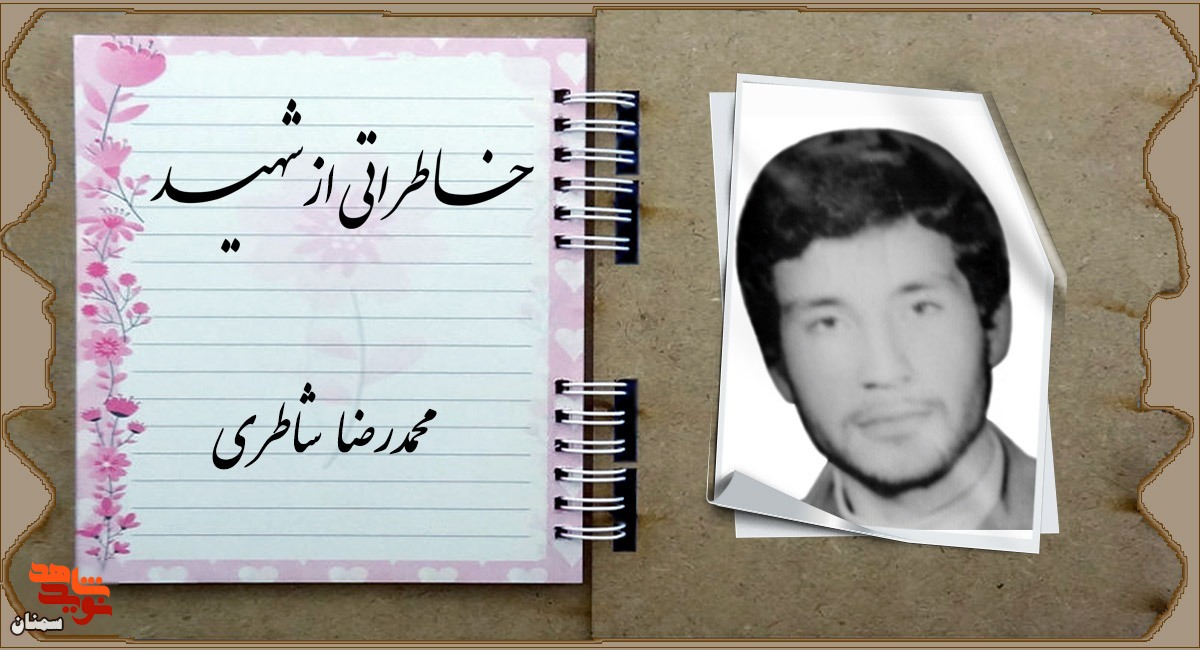 خاطراتی از شهید
محمدرضا شاطری
نوید شاهد
سمنان